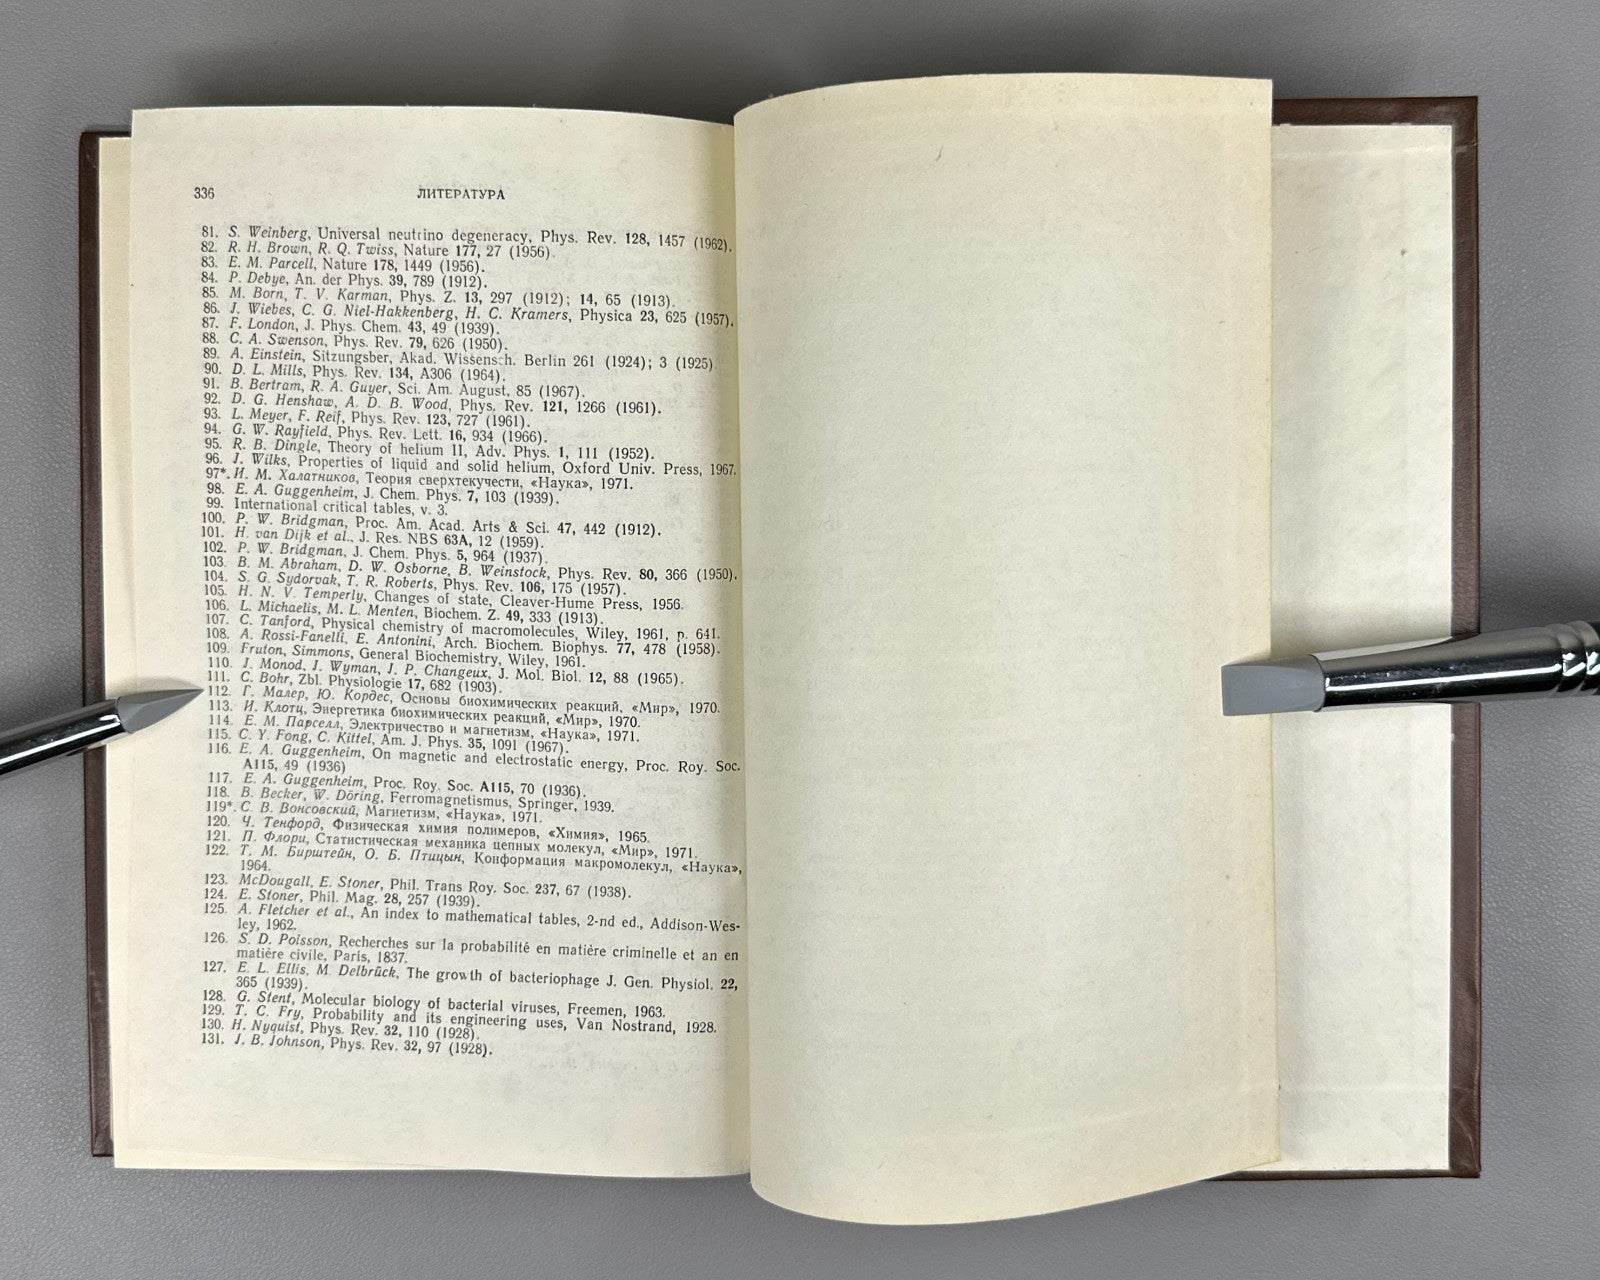 336
ЛИТЕРАТУРА
81. S. Weinberg, Universal neutrino degeneracy, Phys. Rev. 128, 1457 (1962).
82. R. H. Brown, R. Q. Twiss, Nature 177, 27 (1956).
83. E. M. Parcell, Nature 178, 1449 (1956).
84. P. Debye, An. der Phys. 39, 789 (1912).
85. M. Born, T. V. Karman, Phys. Z. 13, 297 (1912); 14, 65 (1913).
86. J. Wiebes, C. G. Niel-Hakkenberg, H. C. Kramers, Physica 23, 625 (1957).
87. F. London, J. Phys. Chem. 43, 49 (1939).
88. C. A. Swenson, Phys. Rev. 79, 626 (1950).
89. A. Einstein, Sitzungsber, Akad. Wissensch. Berlin 261 (1924); 3 (1925).
90. D. L. Mills, Phys. Rev. 134, A306 (1964).
91. B. Bertram, R. A. Guyer, Sci. Am. August, 85 (1967).
92. D. G. Henshaw, A. D. B. Wood, Phys. Rev. 121, 1266 (1961).
93. L. Meyer, F. Reif, Phys. Rev. 123, 727 (1961).
94. G. W. Rayfield, Phys. Rev. Lett. 16, 934 (1966).
95. R. B. Dingle, Theory of helium II, Adv. Phys. 1, 111 (1952).
96. J. Wilks, Properties of liquid and solid helium, Oxford Univ. Press, 1967.
97*. И. М. Халатников, Теория сверхтекучести, «Наука», 1971.
98. E. A. Guggenheim, J. Chem. Phys. 7, 103 (1939).
99. International critical tables, v. 3.
100. P. W. Bridgman, Proc. Am. Acad. Arts & Sci. 47, 442 (1912).
101. H. van Dijk et al., J. Res. NBS 63A, 12 (1959).
102. P. W. Bridgman, J. Chem. Phys. 5, 964 (1937).
103. B. M. Abraham, D. W. Osborne, B. Weinstock, Phys. Rev. 80, 366 (1950).
104. S. G. Sydorvak, T. R. Roberts, Phys. Rev. 106, 175 (1957).
105. H. N. V. Temperly, Changes of state, Cleaver-Hume Press, 1956.
106. L. Michaelis, M. L. Menten, Biochem. Z. 49, 333 (1913).
107. C. Tanford, Physical chemistry of macromolecules, Wiley, 1961, p. 641.
108. A. Rossi-Fanelli, E. Antonini, Arch. Biochem. Biophys. 77, 478 (1958).
109. Fruton, Simmons, General Biochemistry, Wiley, 1961.
110. J. Monod, J. Wyman, J. P. Changeux, J. Mol. Biol. 12, 88 (1965).
111. C. Bohr, Zbl. Physiologie 17, 682 (1903).
112. Г. Малер, Ю. Кордес, Основы биохимических реакций, «Мир», 1970.
113. И. Клотц, Энергетика биохимических реакций, «Мир», 1970.
114. Е. М. Парселл, Электричество и магнетизм, «Наука», 1971.
115. C. Y. Fong, C. Kittel, Am. J. Phys. 35, 1091 (1967).
116. E. A. Guggenheim, On magnetic and electrostatic energy, Proc. Roy. Soc.
A115, 49 (1936)
117. E. A. Guggenheim, Proc. Roy. Soc. A115, 70 (1936).
118. B. Becker, W. Döring, Ferromagnetismus, Springer, 1939.
119*. С. В. Вонсовский, Магнетизм, «Наука», 1971.
120. Ч. Тенфорд, Физическая химия полимеров, «Химия», 1965.
121. П. Флори, Статистическая механика цепных молекул, «Мир», 1971.
122. Т. М. Бирштейн, О. Б. Птицын, Конформация макромолекул, «Наука»,
1964.
123. McDougall, E. Stoner, Phil. Trans Roy. Soc. 237, 67 (1938).
124. E. Stoner, Phil. Mag. 28, 257 (1939).
125. A. Fletcher et al., An index to mathematical tables, 2-nd ed., Addison-Wes-
ley, 1962.
126. S. D. Poisson, Recherches sur la probabilité en matière criminelle et an en
matière civile, Paris, 1837.
127. E. L. Ellis, M. Delbrück, The growth of bacteriophage J. Gen. Physiol. 22,
365 (1939).
128. G. Stent, Molecular biology of bacterial viruses, Freemen, 1963.
129. T. C. Fry, Probability and its engineering uses, Van Nostrand, 1928.
130. H. Nyquist, Phys. Rev. 32, 110 (1928).
131. J. B. Johnson, Phys. Rev. 32, 97 (1928).